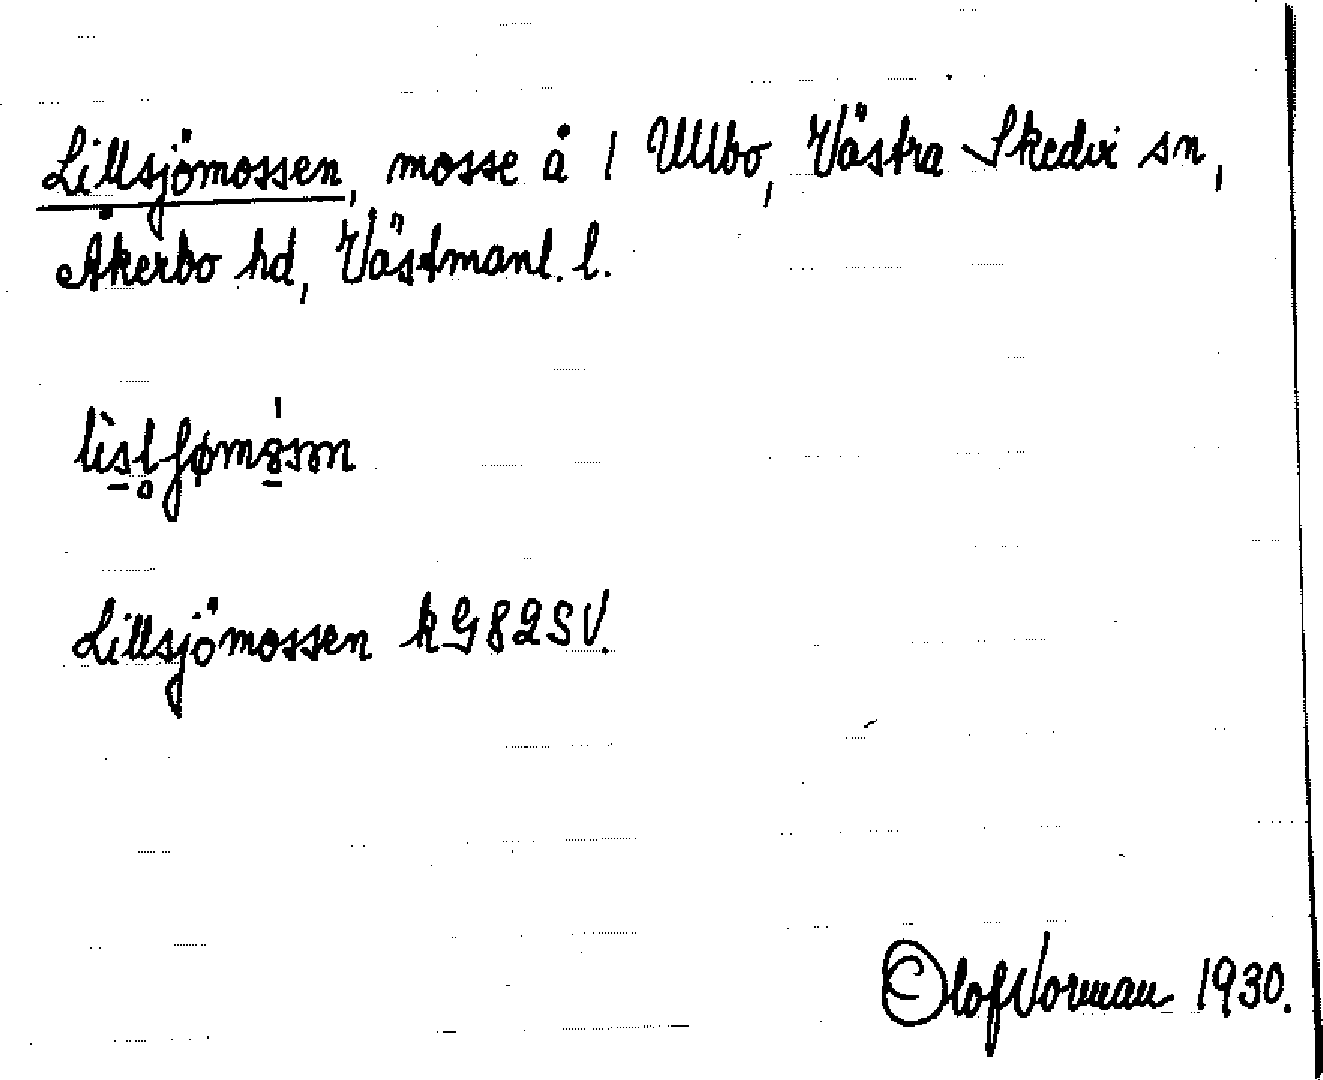 Lillsjömossen, mosse å 1 Ullbo, Västra Skedvi sn,
Åkerbo hd, Västmanl. l.
Lillsjömossen kG82SV.
Olof Norman 1930.